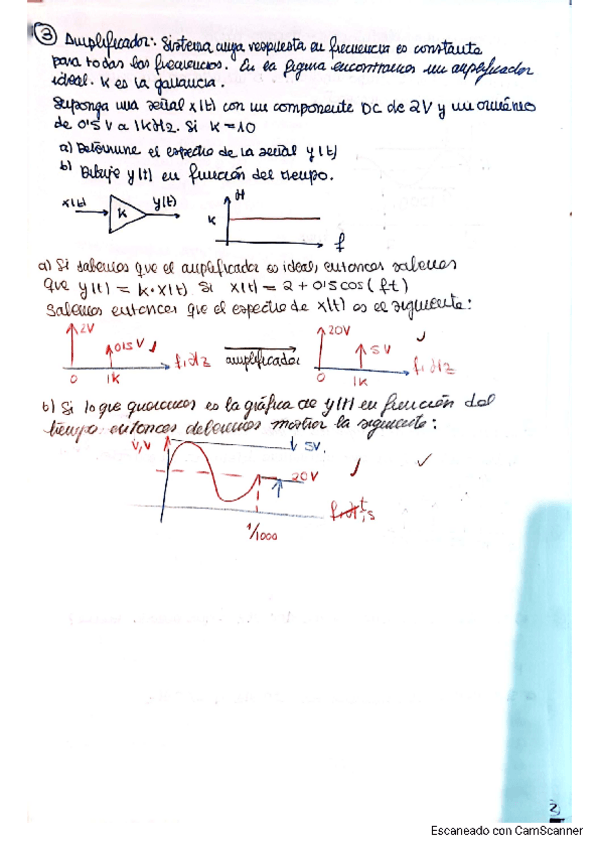 ③ Amplificador: Sistema cuya respuesta en frecuencia es constante
para todas las frecuencias. En la figura encontramos un amplificador
ideal. K es la ganancia.
Suponga una señal x(t) con un componente DC de 2V y un armónico
de 0'5 V a 1kHz. Si K=10
a) Determine el espectro de la señal y(t)
b) Dibuje y(t) en función del tiempo.
x(t) K y(t) H K f
a) Si sabemos que el amplificador es ideal, entonces sabemos
que y(t) = K·x(t) Si x(t) = 2 + 0'5 cos(ft)
Sabemos entonces que el espectro de x(t) es el siguiente:
2V 0'5 V 20V 5V
amplificador f, Hz f, Hz
0 1K 0 1K
b) Si lo que queremos es la gráfica de y(t) en función del
tiempo entonces debemos mostrar la siguiente:
V, V 5V.
20V
t, s
1/1000
2
Escaneado con CamScanner